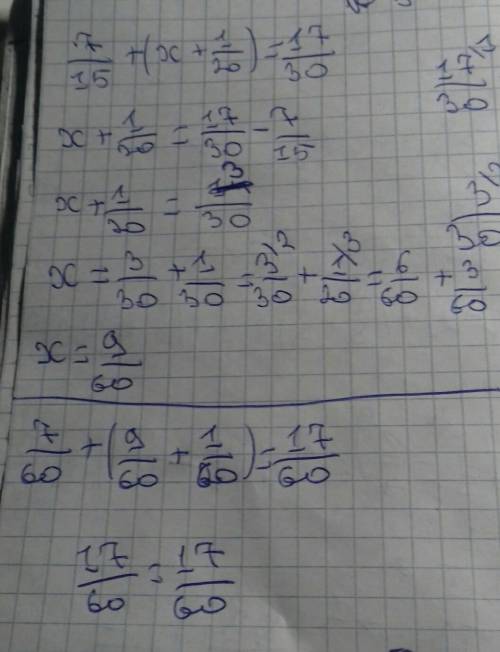 7/15 + (x + 1/20) = 17/30
x + 1/20 = 17/30 - 7/15
x + 1/20 = 3/30
x = 3/30 + 1/30 = 3/30 /2 + 1/20 /3 = 6/60 + 3/60
x = 9/60
7/60 + (9/60 + 1/60) = 17/60
17/60 = 17/60